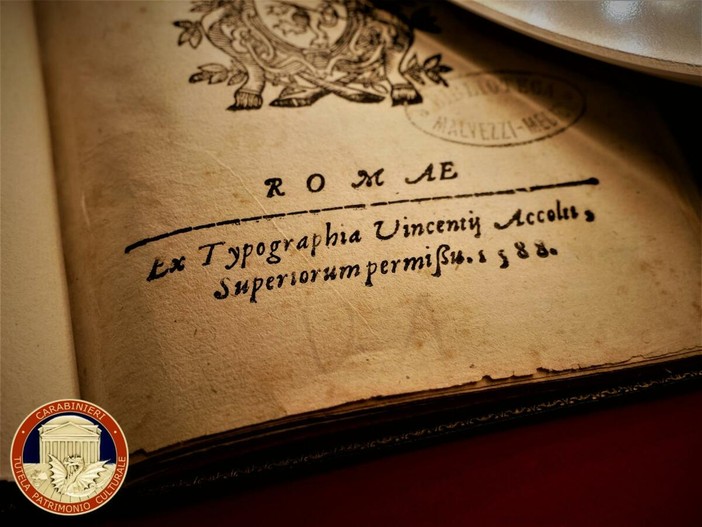 BIBLIOTECA
MALVEZZI-MED
ROMAE
Ex Typographia Vincentij Accolti,
Superiorum permißu. 1588.
CARABINIERI
TUTELA PATRIMONIO CULTURALE